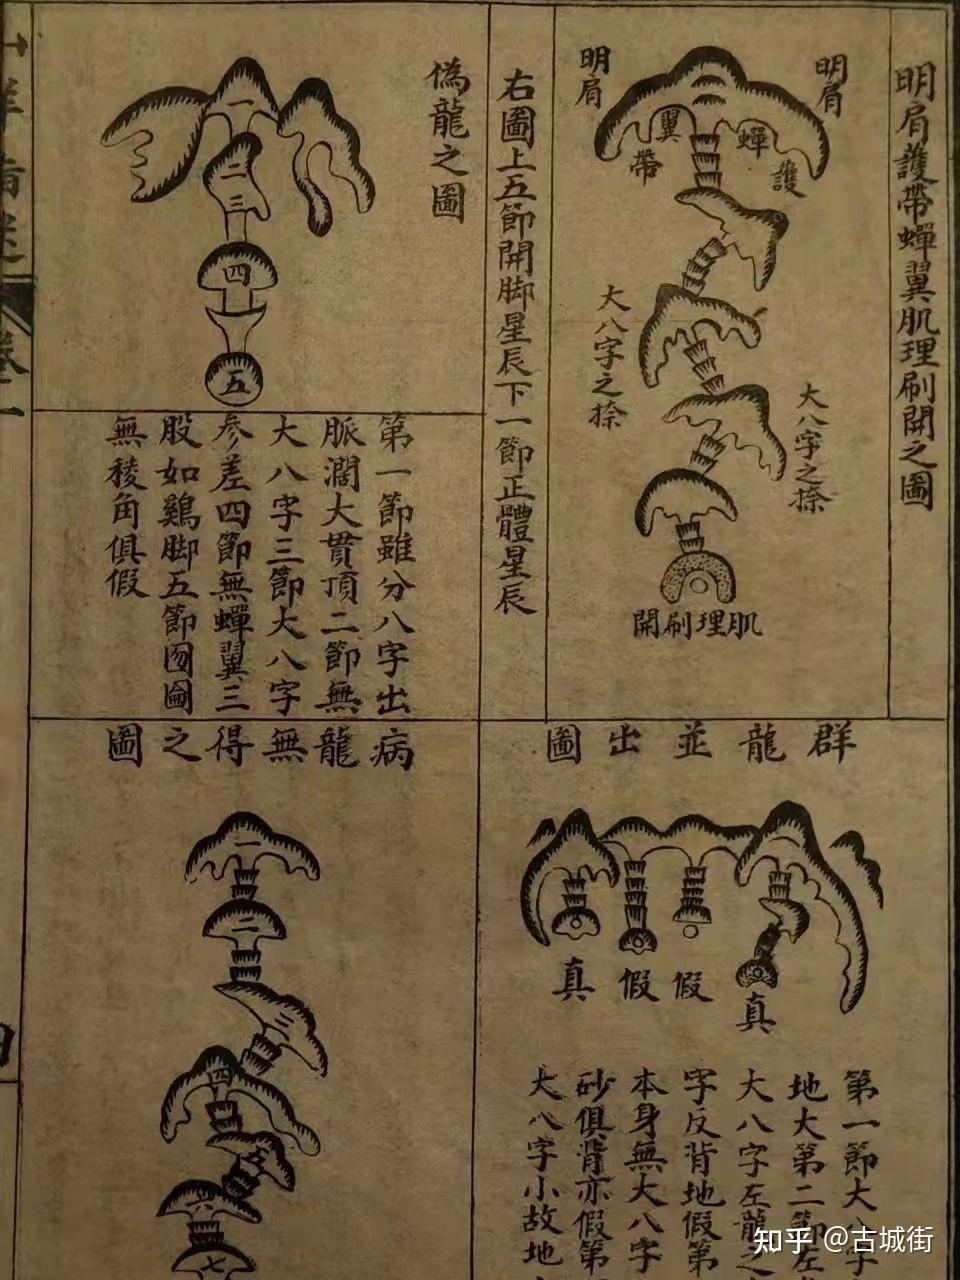 明肩護帶蟬翼肌理刷開之圖
明肩
明肩
蟬
翼
護
帶
大八字之捺
大八字之捺
肌理刷開
右圖上五節開脚星辰下一節正體星辰
偽龍之圖
一
二
三
四
五
第一節雖分八字出
脈濶大貫頂二節無
大八字三節大八字
參差四節無蟬翼三
股如鷄脚五節囫圇
無稜角俱假
群龍並出圖
真
假
假
真
第一節大八字
地大第二節左
大八字左龍之
字反背地假第
本身無大八字
砂俱背亦假第
大八字小故地
病龍無得之圖
一
二
三
四
五
六
七
知乎 @古城街